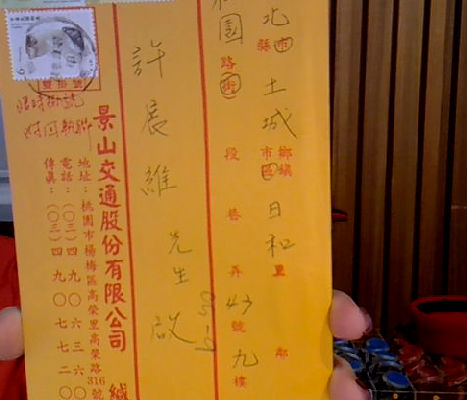 北市縣土城鄉鎮市區日和里鄰
園路街段巷弄43號九樓
許展維先生啟
景山交通股份有限公司 緘
地址：桃園市楊梅區高榮里高榮路316號
電話：（〇三）四九〇六三六〇
傳真：（〇三）四九〇七七二〇
雙掛號